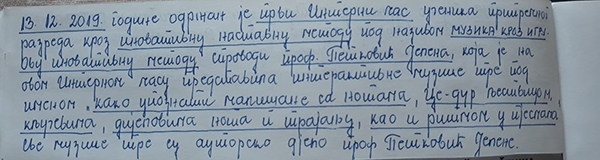 13. 12. 2019. године одржан је први Интерни час ученика припремног
разреда кроз иновативну наставну методу под називом МУЗИКА КРОЗ ИГРУ.
Ову иновативну методу спроводи проф. Петковић Јелена, која је на
овом Интерном часу представила интерактивне музичке игре под
именом, како упознати малишане са нотама, Це-дур љествицом,
кључевима, дијеловима нота и трајању, као и ритмом у пјесмама.
Све музичке игре су ауторско дјело проф Петковић Јелене.